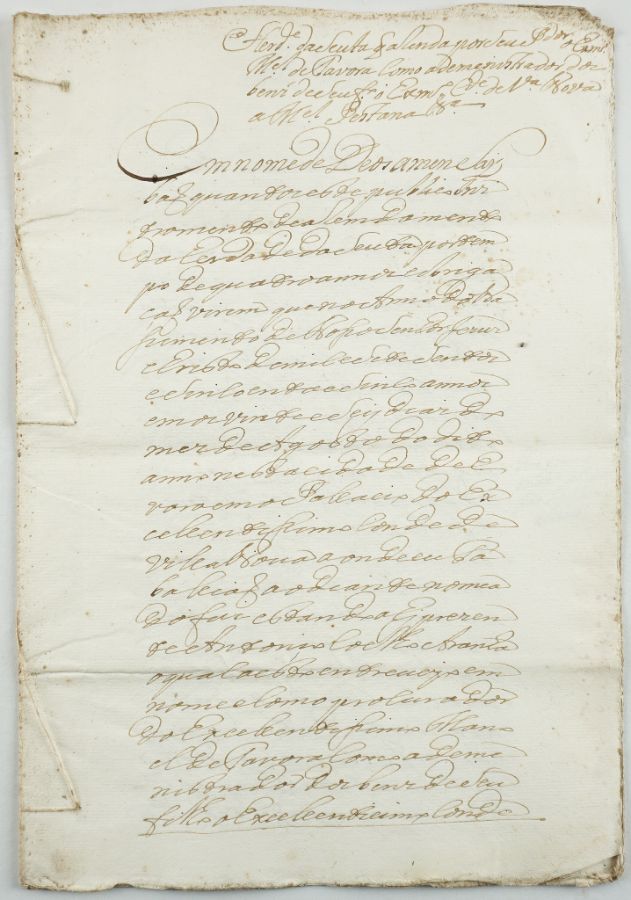 da Seuta por seu
Mel de Tavora comoademenistrador dos
bens de seu fo o Exmo Cde de Va Nova
a Mel
Em nome de Deos amen saj
baẽ quantos este publico Ins
tromento de arendamento
da Erdade da Seuta por tem
po de quatro annos e obriga
caẽ virem que no Anno do Na
simento de Noso Senhor Jesus
Cristo de mil e sete sentos
e sincoenta e sinco annos
em os vinte e seis dias do
mes de Agosto do dito
anno nesta cidade de E
vora em o Pallacio do Ex
cellentissimo Conde de
Villa Nova aonde eu Ta
baliaẽ ao diante nomea
do fui estando ahj prezen
te Antonio
o qual aesta en em
nome e como procurador
do Excellentissimo Mano
el de Tavora como ademe
nistrador dos bens de seu
filho o Excellentissimo Conde